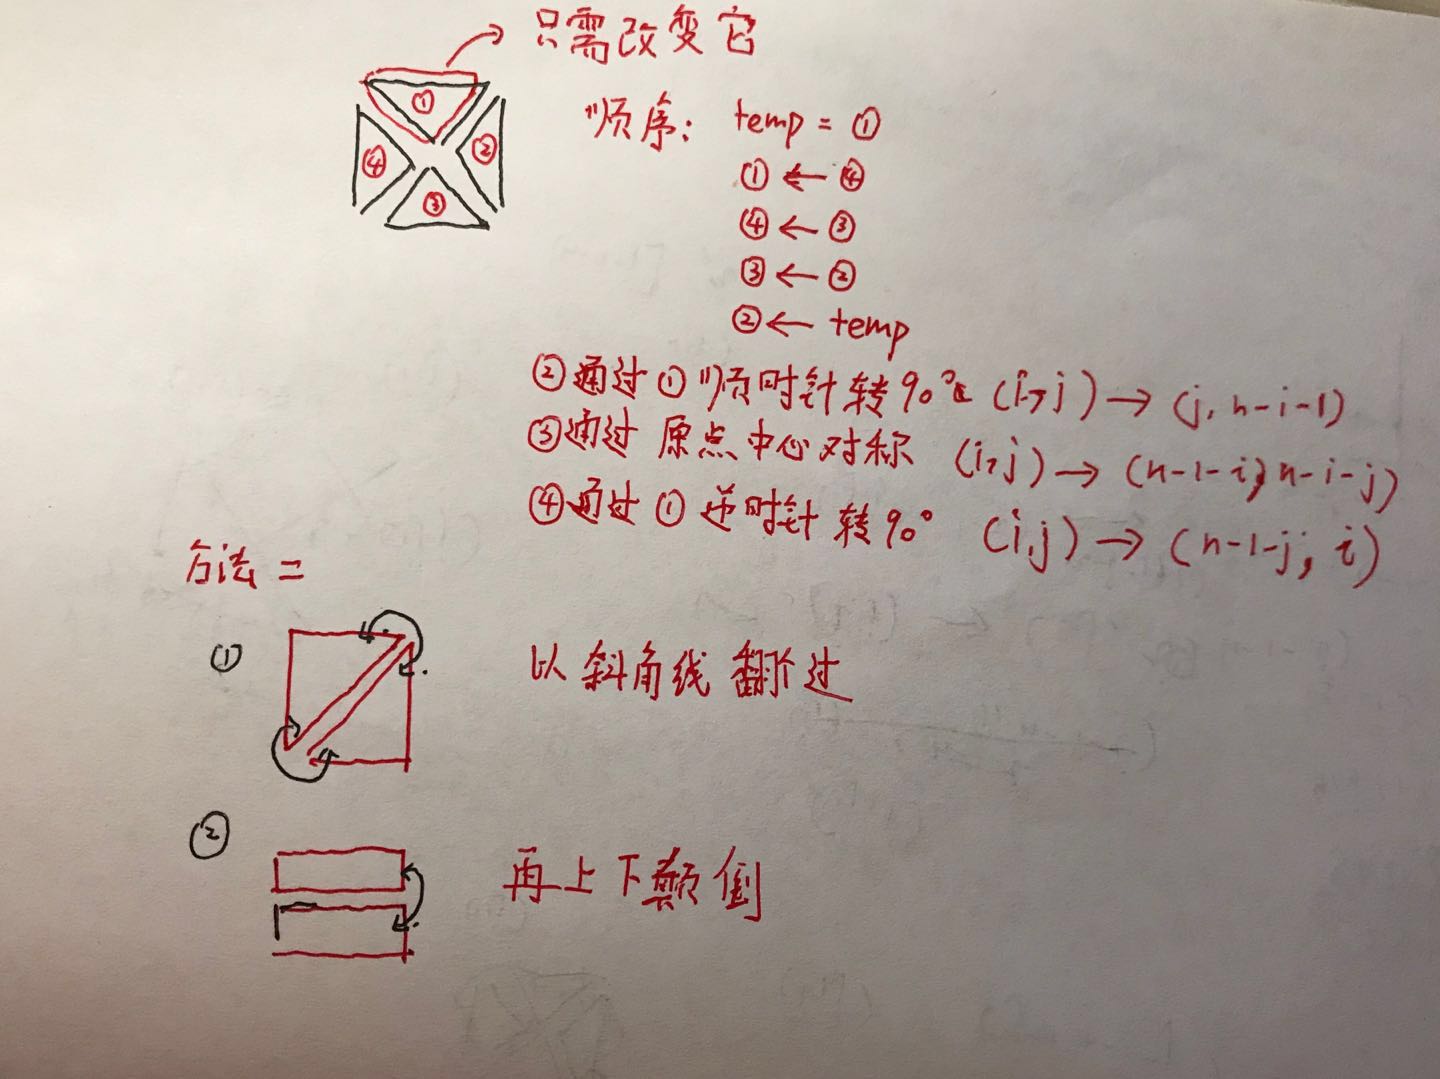 只需改变它
①
②
③
④
顺序: temp = ①
① ← ④
④ ← ③
③ ← ②
② ← temp
②通过①顺时针转90° (i,j) → (j, n-i-1)
③通过原点中心对称 (i,j) → (n-1-i, n-i-j)
④通过①逆时针转90° (i,j) → (n-1-j, i)
方法二
① 以斜角线翻过
② 再上下颠倒